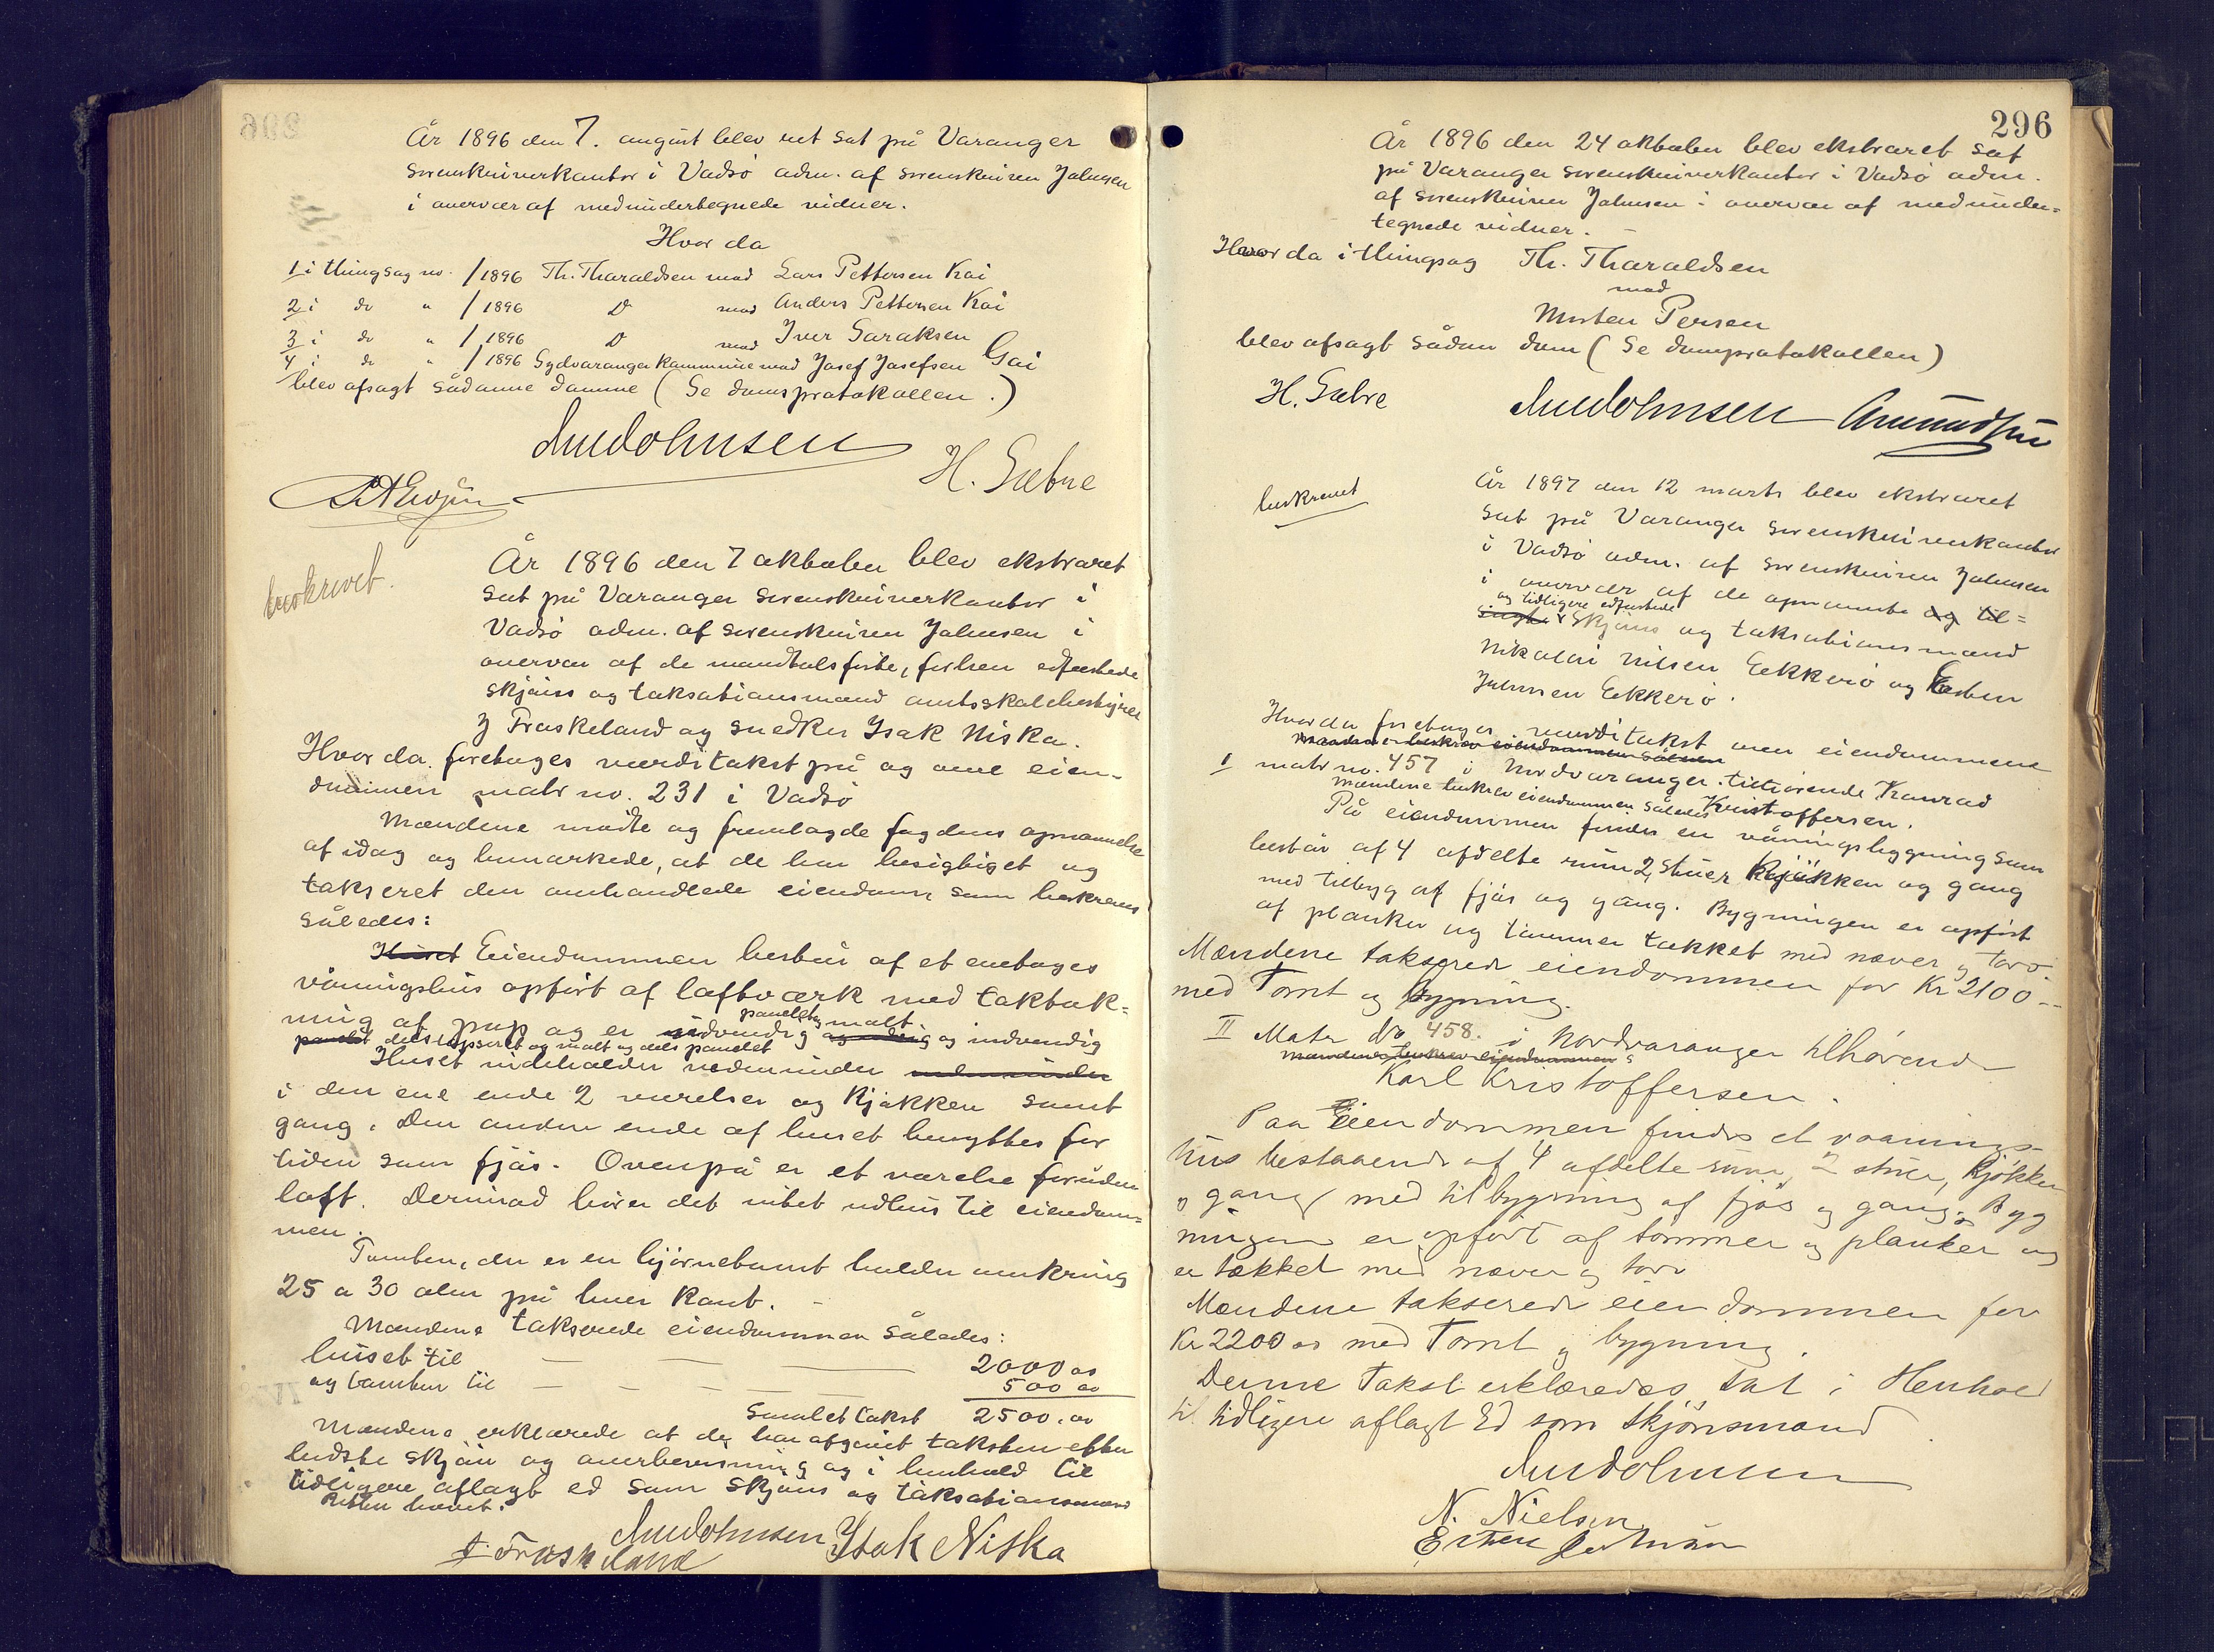 År 1896 den 7. august blev ret sat på Varanger
sorenskriverkontor i Vadsø adm. af sorenskriveren Johnsen
i overvær af medundertegnede vidner.
Hvor da
1 i thingsag no. / 1896 Th. Tharaldsen mod Lars Pettersen Kai
2 i do " / 1896 D mod Anders Pettersen Kai
3 i do " / 1896 D mod Iver Saraksen
4 i do " / 1896 Sydvaranger kommune mod Josef Josefsen Gai
blev afsagt sådanne domme (Se domsprotokollen.)
Johnsen
H. Sæbre
beskrevet.
År 1896 den 7 oktober blev ekstraret
sat på Varanger sorenskriverkontor i
Vadsø adm. af sorenskriveren Johnsen i
overvær af de mandtalsførte, forhen edfæstede
skjøns og taksationsmænd amtsskolebestyrer
J Fraskeland og snedker Isak Niska.
Hvor da foretages værditakst på og over eien-
dommen matr no. 231 i Vadsø
Mændene mødte og fremlagde fogdens opnævnelse
af idag og bemærkede, at de har besigtiget og
takseret den omhandlede eiendom som beskrives
således:
Huset Eiendommen består af et enetages
våningshus opført af laftværk med taktæk-
ning af pap og er udvendig panelet og malt og indvendig
panelet dels tapseret og malt og dels panelet
Huset indeholder nedenunder nedenunder
i den ene ende 2 værelser og kjøkken samt
gang. Den anden ende af huset benyttes for
tiden som fjøs. Ovenpå er et værelse foruden
loft. Derimod hører det intet udhus til eiendom=
men.
Tomten, der er en hjørnetomt holder omkring
25 a 30 alen på hver kant. -
Mændene takserede eiendommen således:
huset til 2000 oo
og tomten til 500 oo
Samlet takst 2500,oo
Mændene erklærede at de har afgivet taksten efter
bedste skjøn og overbevisning og i henhold til
tidligere aflagt ed som skjøns og taksationsmænd
Retten hævet.
Johnsen Isak Niska
J. Fraskeland
296
År 1896 den 24 oktober blev ekstraret sat
på Varanger sorenskriverkontor i Vadsø adm.
af sorenskriveren Johnsen i overvær af medunder=
tegnede vidner. -
Hvor da i thingsag Th. Tharaldsen
mod
Morten Persen
blev afsagt sådan dom (Se domsprotokollen)
H. Sæbre Johnsen Amundsen
beskrevet
År 1897 den 12 marts blev ekstraret
sat på Varanger sorenskriverkontor
i Vadsø adm. af sorenskriveren Johnsen
i overvær af de opnævnte og til=
og tidligere edfæstede
skjøns og taksationsmænd
Nikolai Nilsen Ekkerø og Esten
Johnsen Ekkerø.
Hvor da foretages værditakst over eiendommene
Mændene beskrev eiendommen således
1 matr no. 457 i Nordvaranger tilhørende Konrad
Mændene beskrev eiendommen således Kristoffersen.
På eiendommen findes en våningsbygning som
består af 4 afdelte rum 2 stuer kjøkken og gang
med tilbyg af fjøs og gang. Bygningen er opført
af planker og tømmer tækket med næver og torv.
Mændene takserede eiendommen for Kr 2100 --
med Tomt og bygning.
II Matr No 458. i Nordvaranger tilhørende
Mændene beskrev eiendommen s
Karl Kristoffersen.
Paa Eiendommen findes et vaanings-
hus bestaaende af 4 afdelte rum, 2 stuer, kjøkken
og gang med tilbygning af fjøs og gang. Byg
ningen er opført af tømmer og planker og
er tækket med næver og torv
Mændene takserede eiendommen for
Kr 2200 oo med Tomt og bygning.
Denne Takst erklæredes tat i Henhold
til tidligere aflagt Ed som skjønsmænd
Johnsen
N. Nielsen
Esten Johnsen